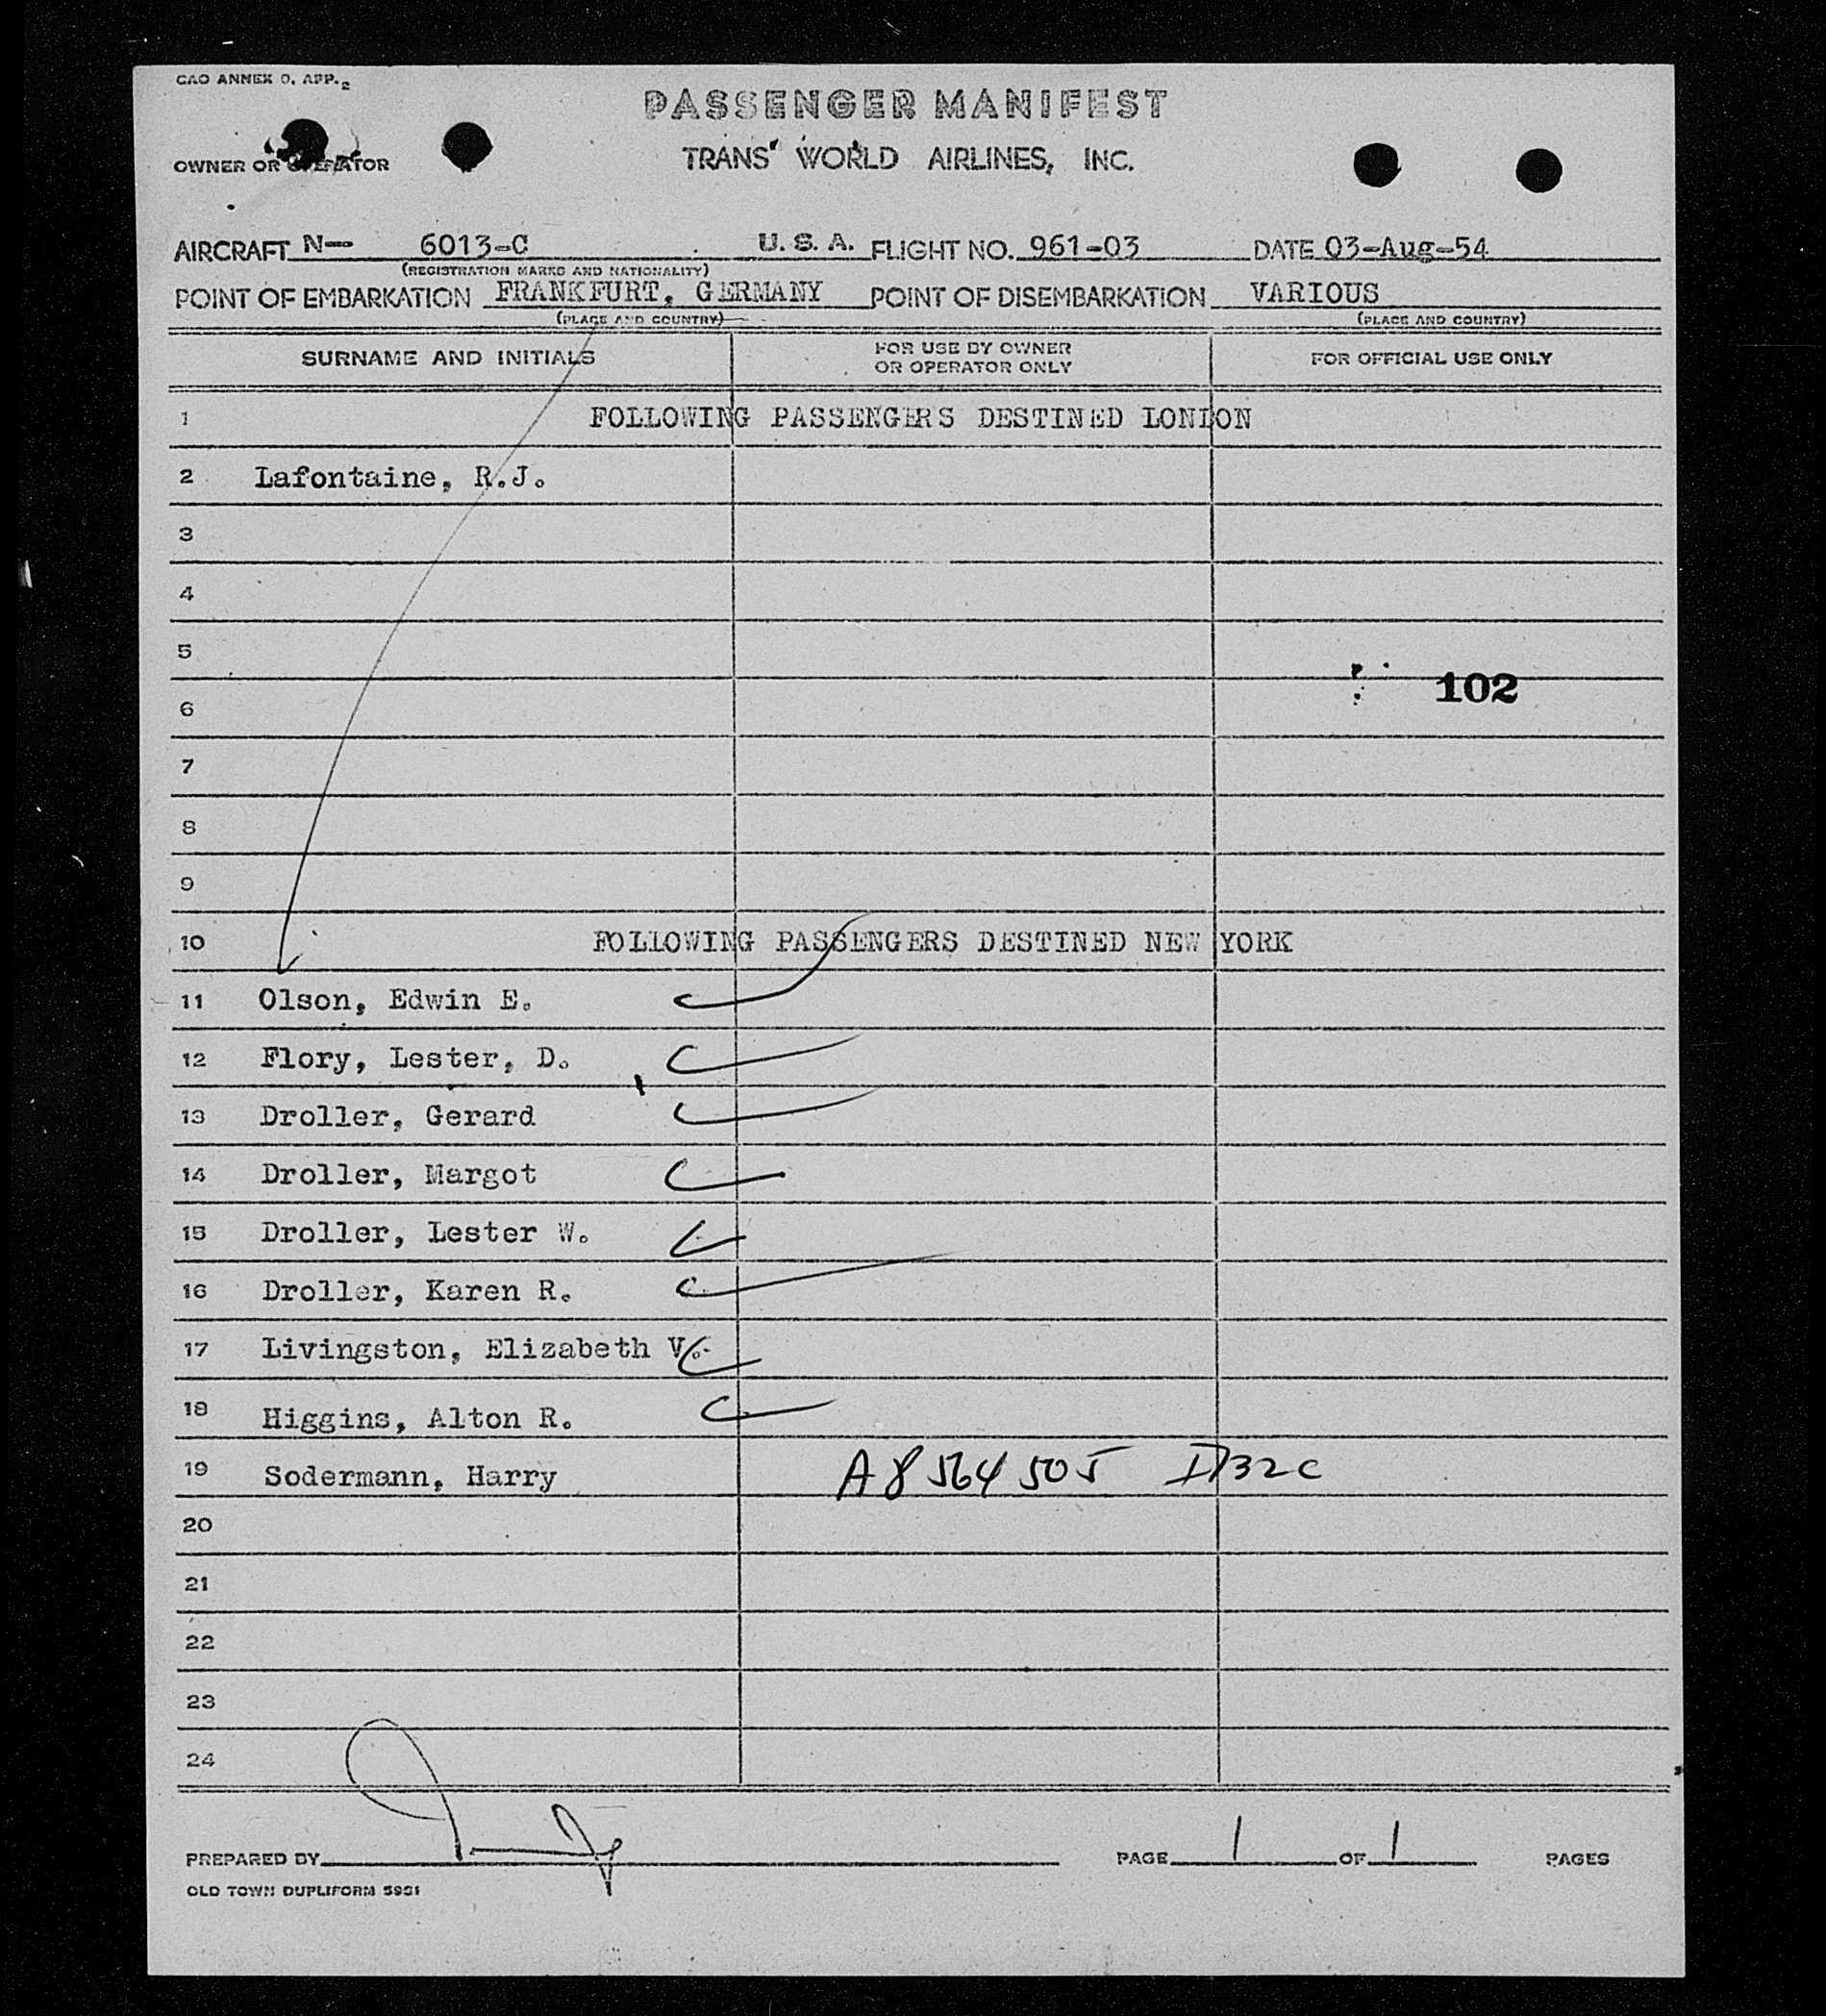 CAO ANNEX 9, APP. 2
PASSENGER MANIFEST
OWNER OR OPERATOR
TRANS WORLD AIRLINES, INC.
AIRCRAFT N— 6013-C U. S. A. FLIGHT NO. 961-03 DATE 03-Aug-54
(REGISTRATION MARKS AND NATIONALITY)
POINT OF EMBARKATION FRANKFURT, GERMANY POINT OF DISEMBARKATION VARIOUS
(PLACE AND COUNTRY) (PLACE AND COUNTRY)
SURNAME AND INITIALS FOR USE BY OWNER OR OPERATOR ONLY FOR OFFICIAL USE ONLY
1 FOLLOWING PASSENGERS DESTINED LONDON
2 Lafontaine, R.J.
3
4
5
102
6
7
8
9
10 FOLLOWING PASSENGERS DESTINED NEW YORK
11 Olson, Edwin E.
12 Flory, Lester, D.
13 Droller, Gerard
14 Droller, Margot
15 Droller, Lester W.
16 Droller, Karen R.
17 Livingston, Elizabeth V.
18 Higgins, Alton R.
19 Sodermann, Harry A8 564 505
20
21
22
23
24
PREPARED BY PAGE 1 OF 1 PAGES
OLD TOWN DUPLIFORM 5951